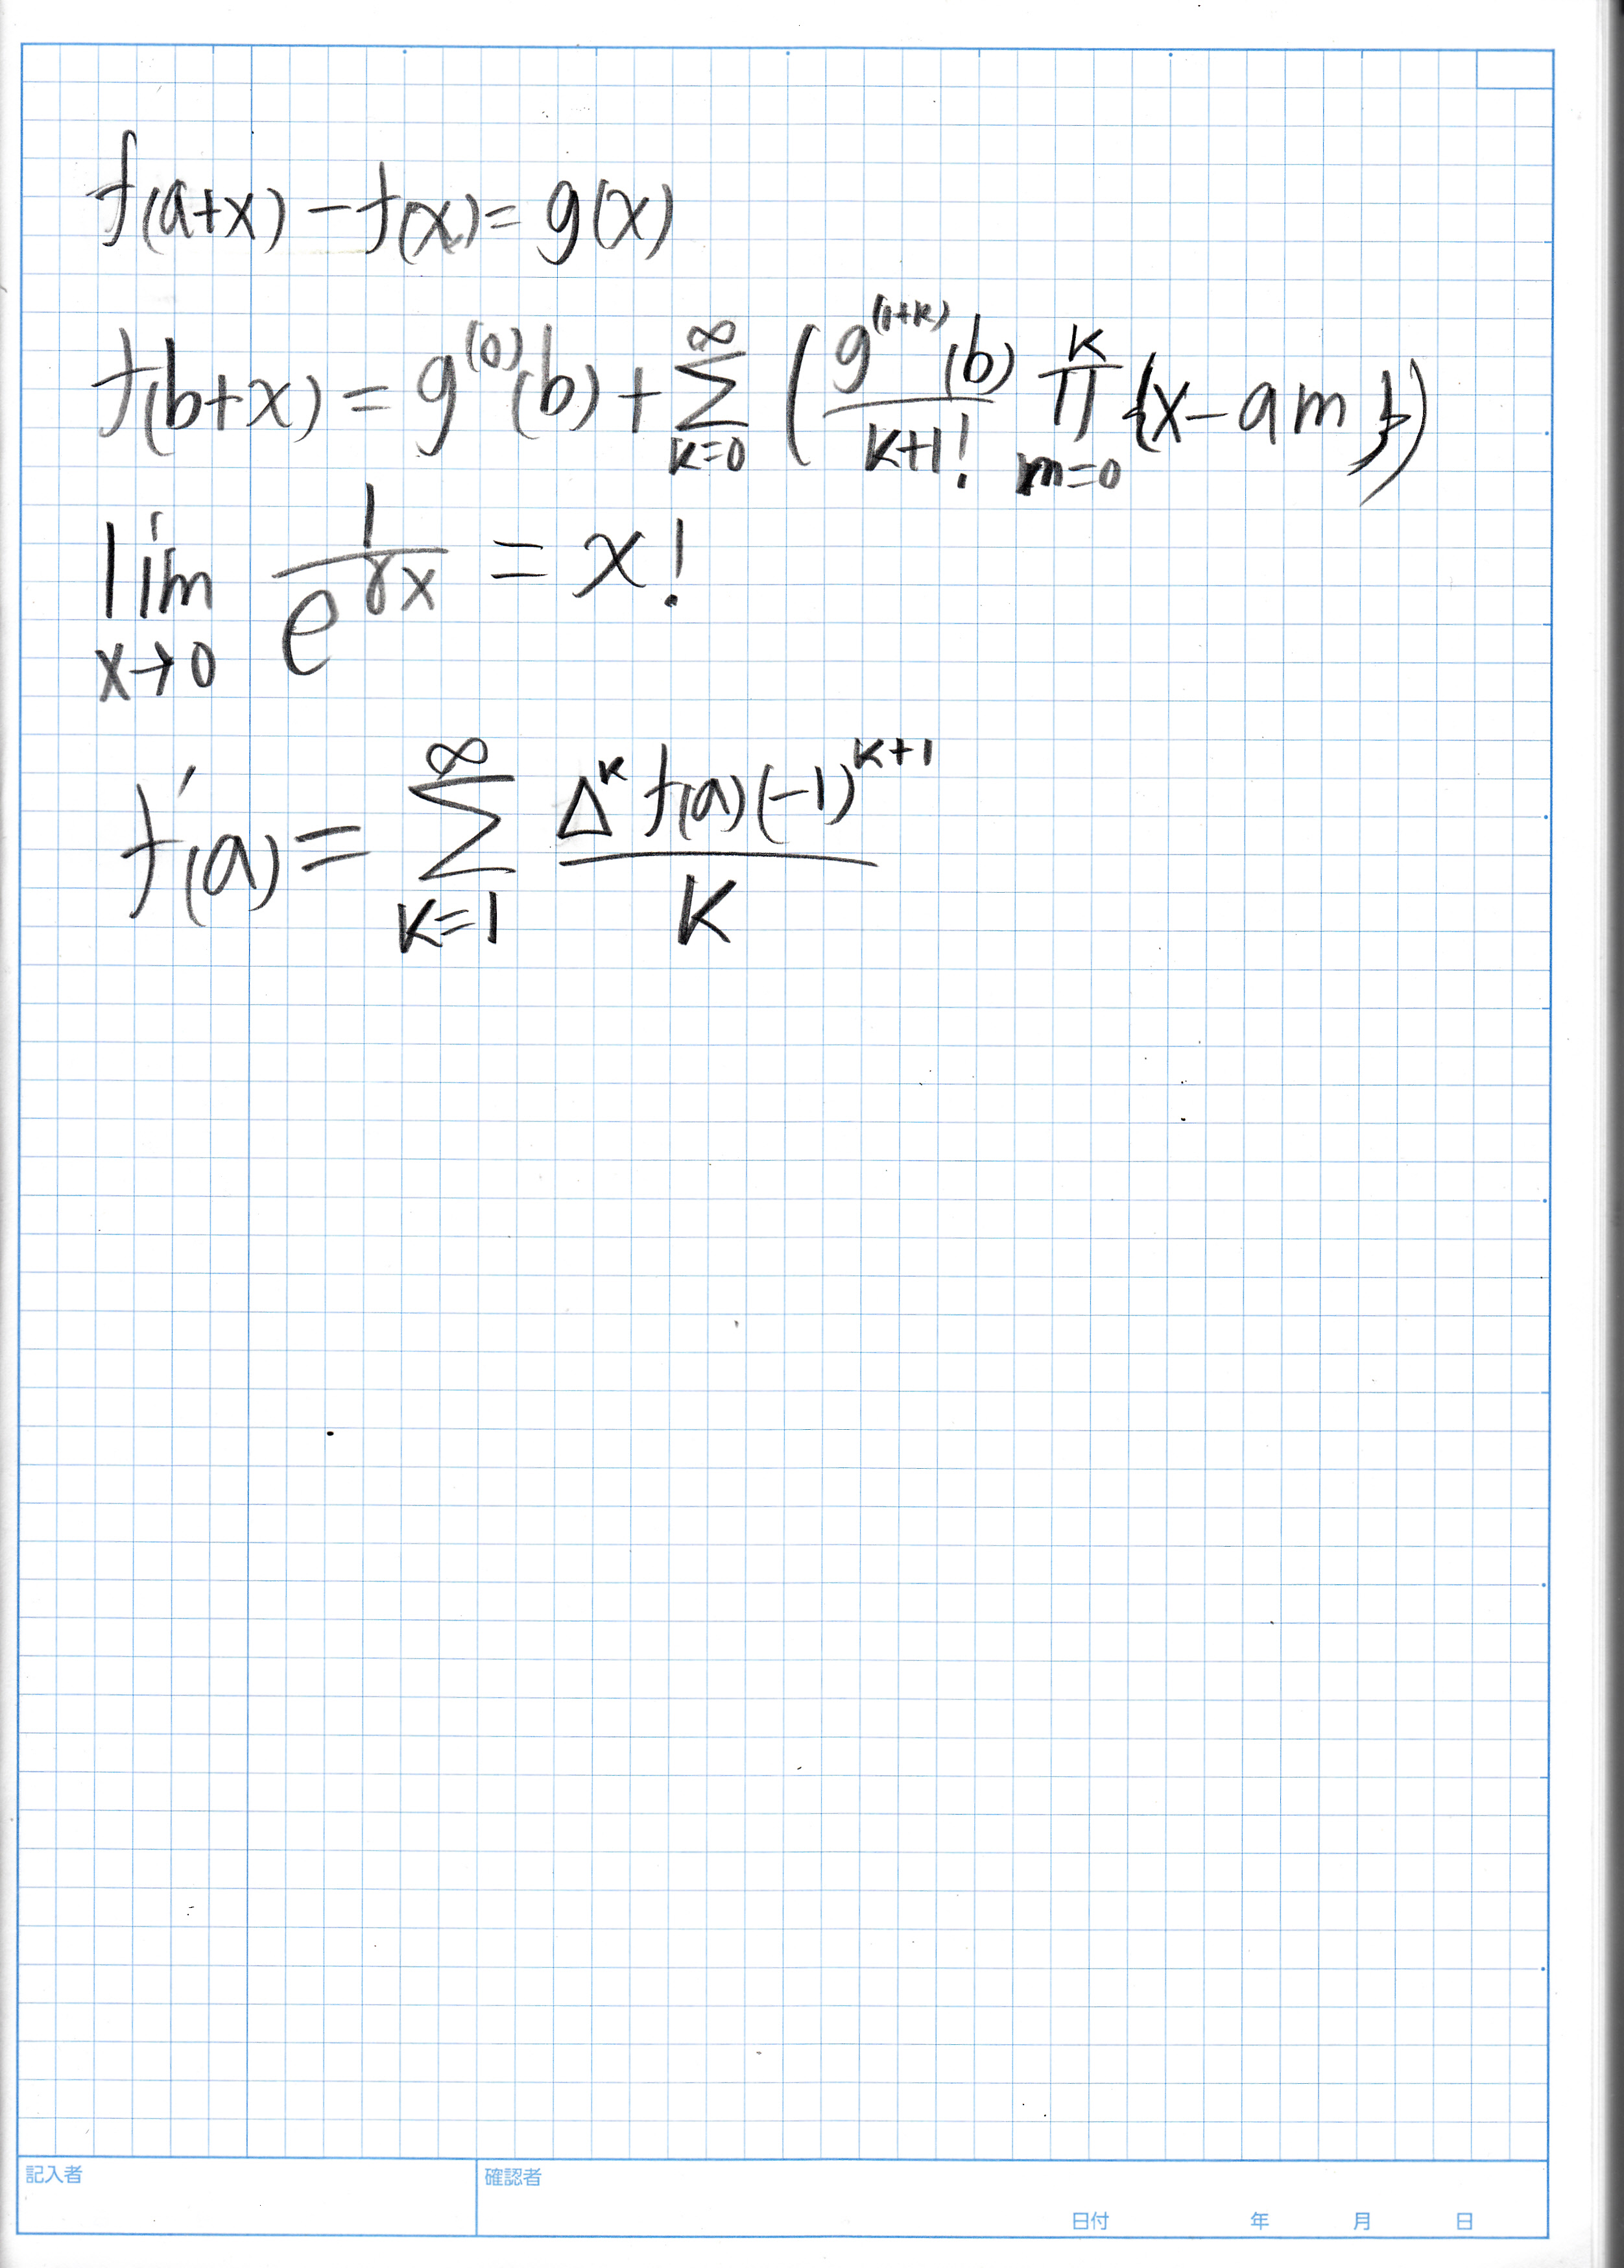 f(a+x) − f(x) = g(x)
f(b+x) = g^{(0)}(b) + \sum_{k=0}^{∞} ( \frac{g^{(1+k)}(b)}{k+1!} \prod_{m=0}^{k} {x−am} )
\lim_{x→0} \frac{1}{e^{γx}} = x!
f'(a) = \sum_{k=1}^{∞} \frac{Δ^k f(a)(−1)^{k+1}}{k}
記入者 確認者
日付 年 月 日